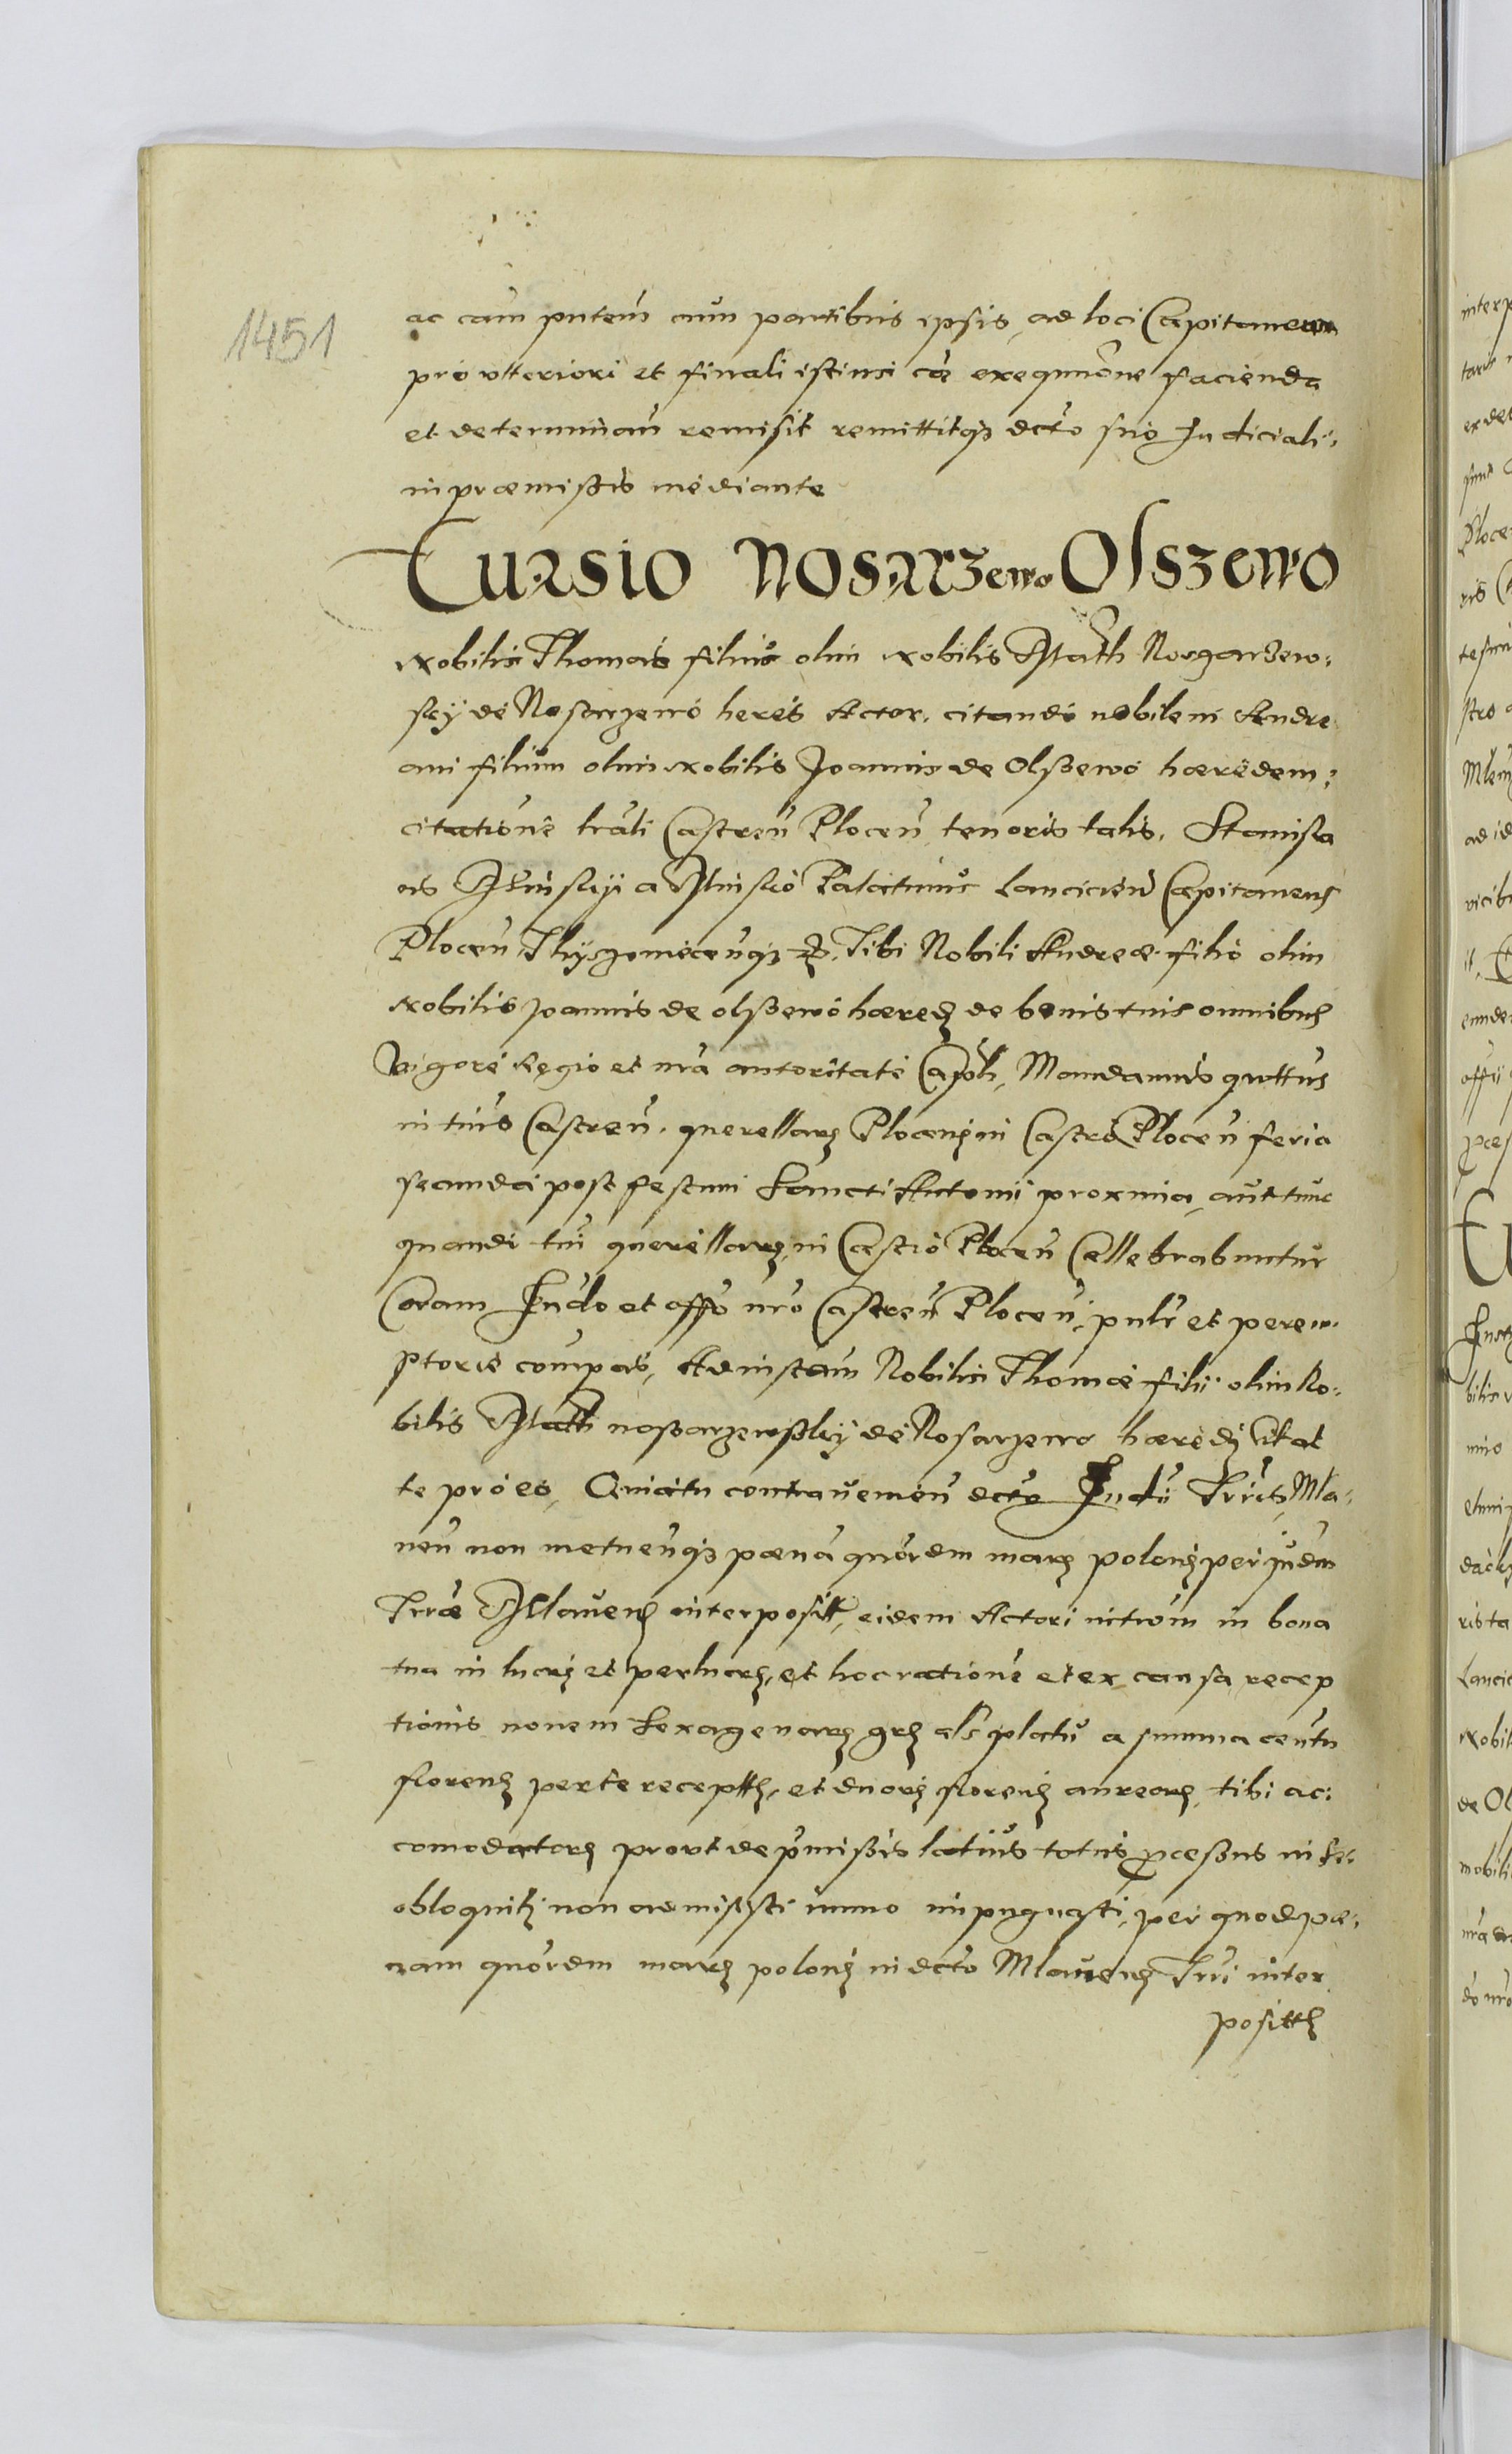 1451
ac cam pntem cum partibus ipsis, ad loci Capitaneum
pro vlteriori et finali istiusi cae exequucione facienda
et determinan remisit remittitqz dcto suo Judiciali
in praemissis mediante
Cursio Nosarzewo Olszewo
Nobilis Thomas filius olim Nobilis Math Nosgarzew:
sky de Nosarzewo heres Actor, citando nobilem Andre
am filium olim Nobilis Joannis de Olszewo haeredem,
citatione lrali Castren Plocen tenoris talis, Stanisla
us Minsky a Minsko Palatinus Lancicien Capitaneus
Plocen qz Tibi Nobili Andreae filio olim
Nobilis Joannis de olszewo haeredz de bonis tuis omnibus
Vigore Regio et nra autoritate Capli, Mandamus quttus
in tuis Castren. querellarz Plocenz in Castro Plocen feria
secunda post festum Sancti Antonii proxima, aut tunc
quando tui querellarz, in Castro Plocen Cellebrabuntur
Coram Judo et offo nro Castren Plocen, pnlr et perem.
ptorie compas, Ad instam Nobilis Thomae filii olim No:
bilis Math naszarzewszky de Nosarzewo haeredz Citat
te pro eo, Quia tu contravenien dcto Judii Trris Mla:
uen non metuenqz paena quordm marz polonz per judm
Trrae Mlavenz interpositt, eidem Actori introm in bona
tua in lucrz et perlucrz, et hoc ratione et ex causa recep
tionis nouem sexagenarz grz als platu a summa centu
florenz per te receptz, et duorz florenz aureorz tibi ac:
comodatorz prout de pmissis latius totus pcessus in se
obloquitz non admisisti immo impugnasti, per quod pae:
nam quordm marz polonz in dcto Mlavenz Trri inter
positz